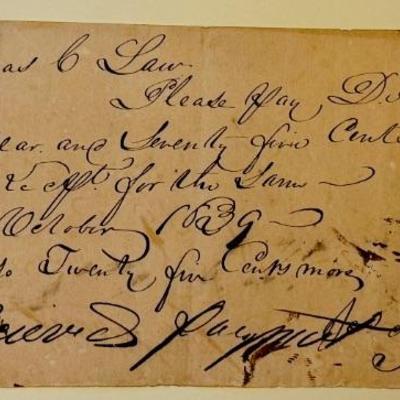 as C Law
Please Pay D
ear and Seventy five Cent
for the Same
October 1839
o Twenty five Cents more
eieved payment